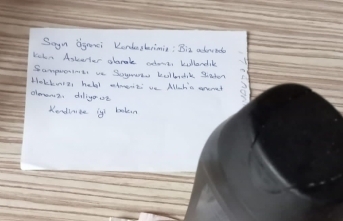 Sayın Öğrenci Kardeşlerimiz: Biz odanızda
kalan Askerler olarak odanızı kullandık
Şampuanınızı ve Sabununuzu kullandık Bizden
Hakkınızı helal etmenizi ve Allah'a emanet
olmanızı diliyoruz
Kendinize iyi bakın